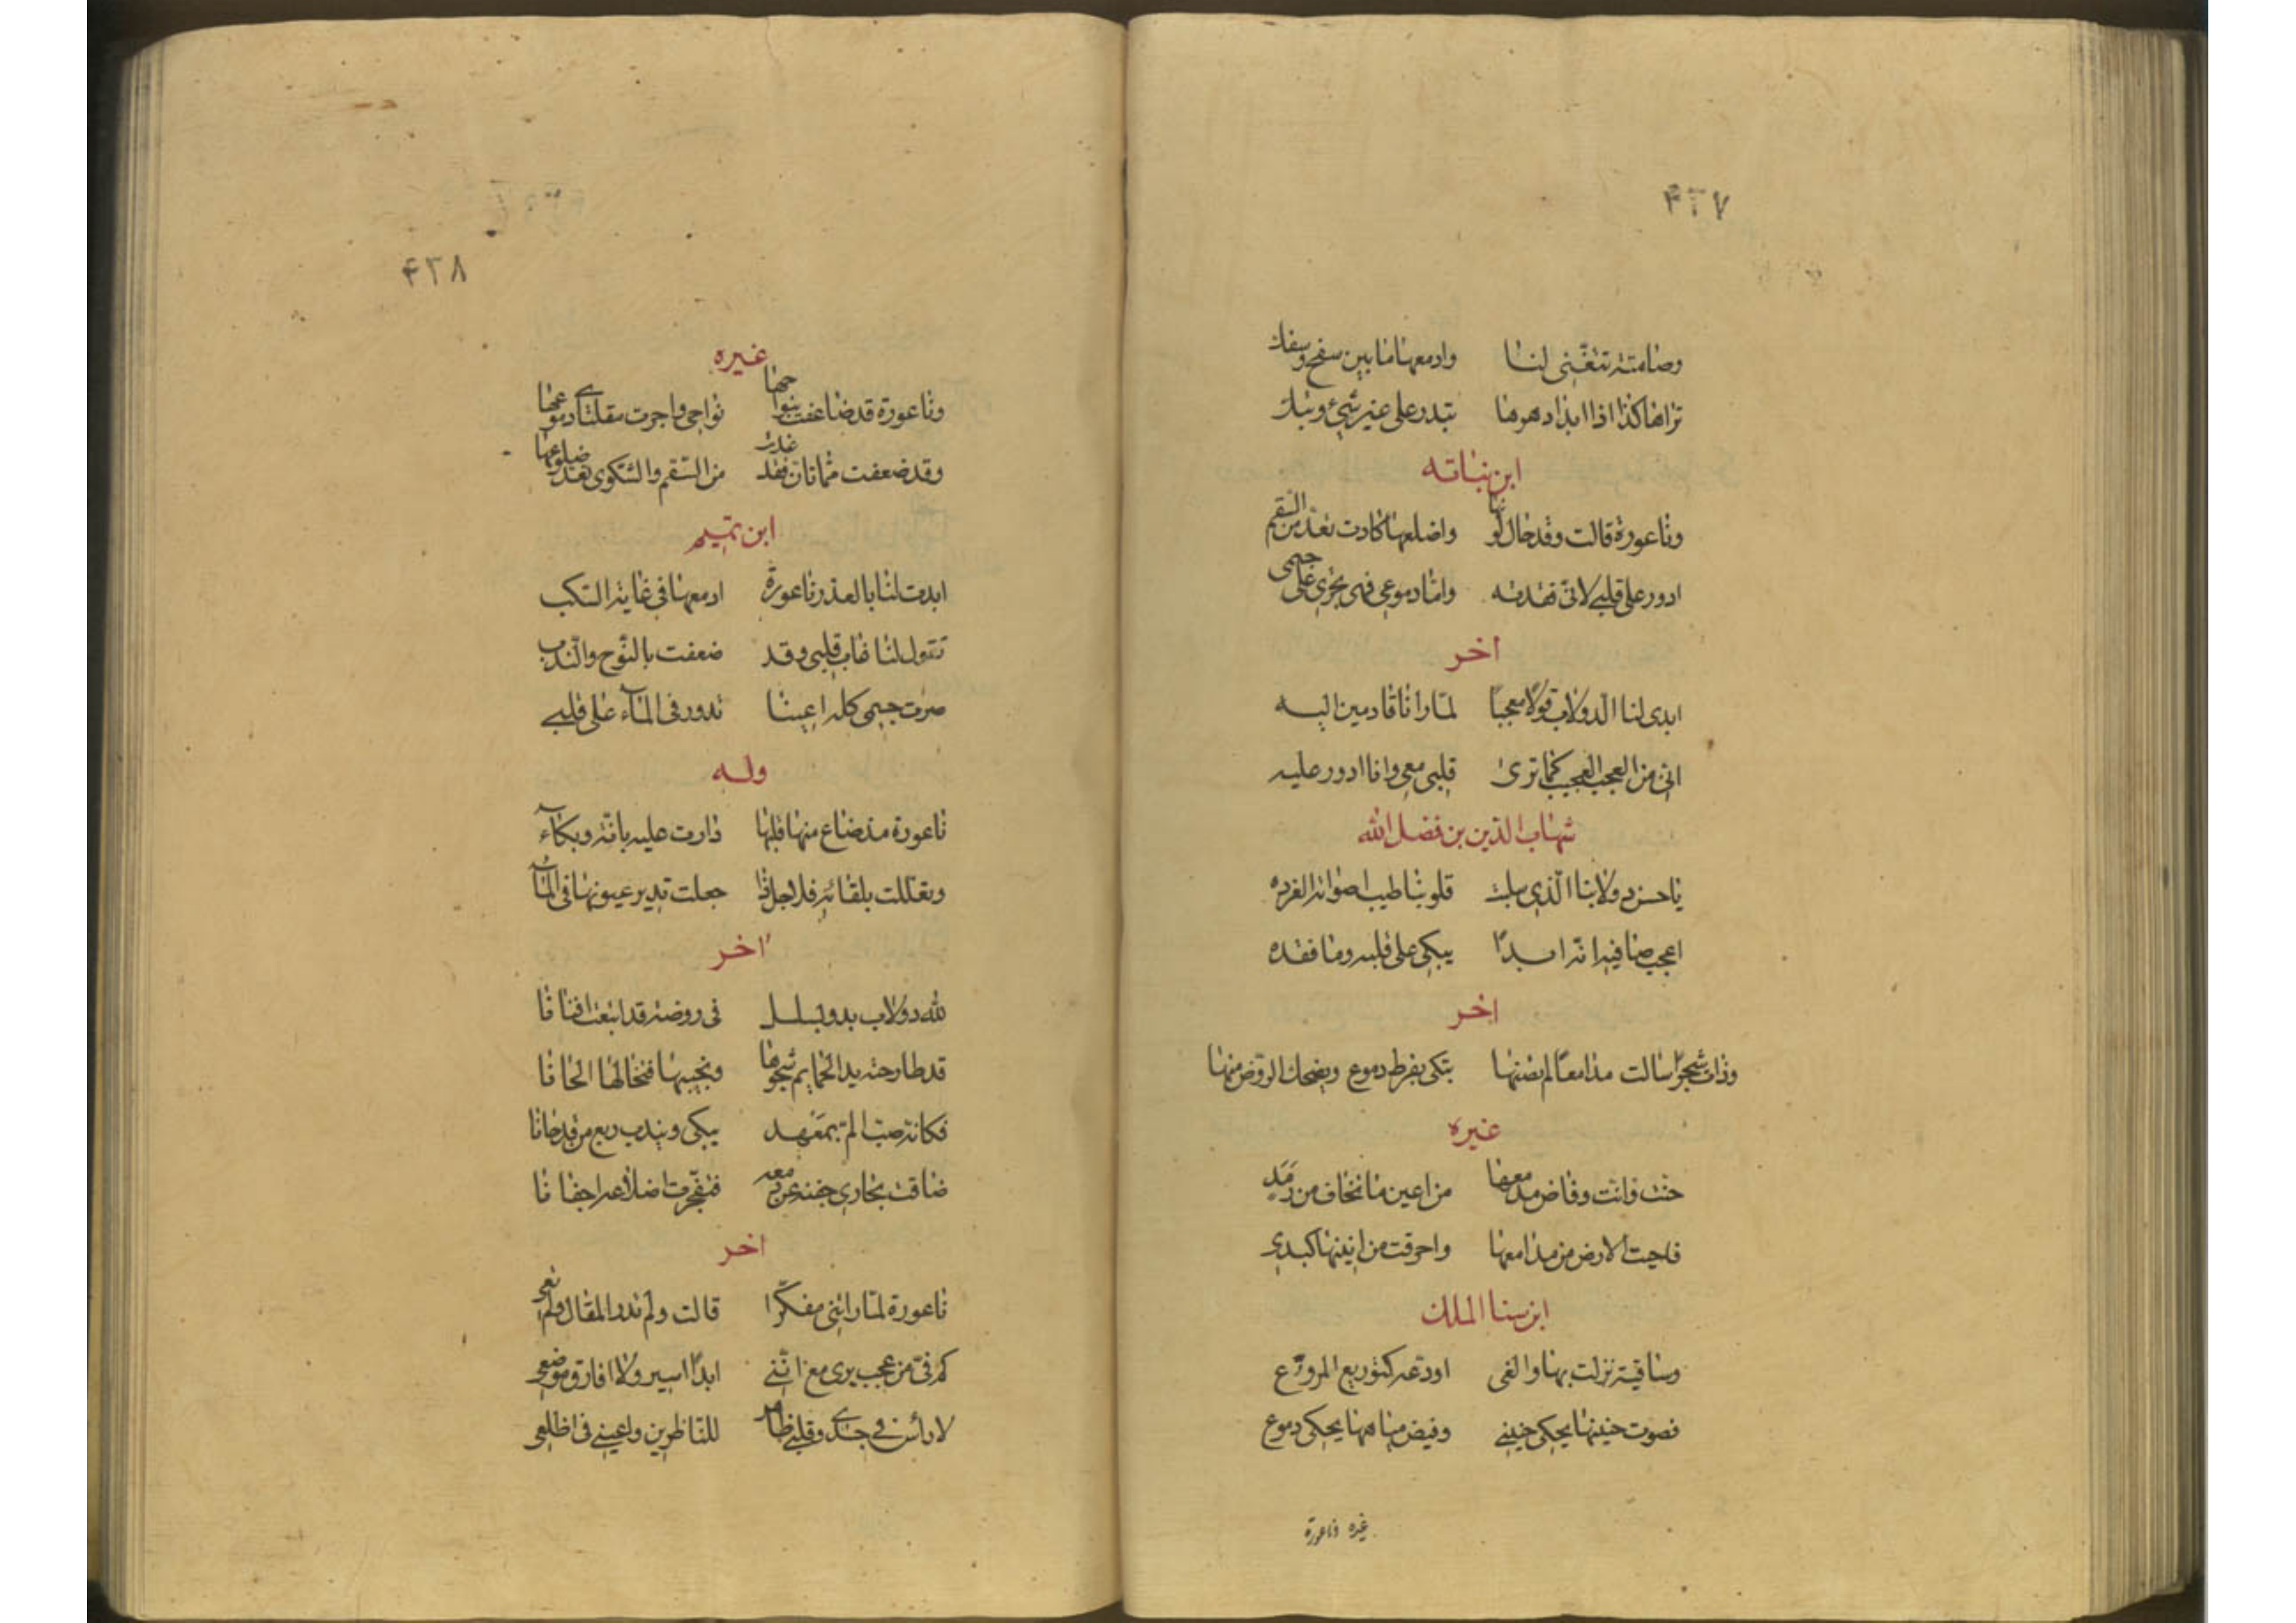 ۴۲۷
وصامتة تتغنى لنا وادمعها ما بين سفح وسفك
تراها كذا اذا ابدا دهرها تبتدر على غير شيئ وتبك
ابن نباته
وناعورة قالت وقد حال لونها واضلعها كادت تعد من السقم
ادور على قلبى لانى فقدته واما دموعى فهى تجرى على جسمى
اخر
ابدى لنا الدولاب قولا معجبا لما رانا قادمين اليه
انى من العجب العجيب كما ترى قلبى معى وانا ادور عليه
شهاب الدين بن فضل الله
يا حسن دولابنا الذى سلبت قلوبنا طيب اصواته الغرده
اعجب ما فيه انه ابدا يبكى على قلبه وما فقده
اخر
وذات شجو اسالت مدامعا لم تصنها تبكى بفرط دموع ويضحك الروض منها
غيره
حنت وانت وفاض مدمعها من اعين ما تخاف من رمد
فاحيت الارض من مدامعها واحرقت من انينها كبدى
ابن سنا الملك
وساقية نزلت بها والفى اودعه كتوديع المروع
فصوت حنينها يحكى حنينى وفيض مياهها يحكى دموعى
غيره وناعورة
۴۲۸
غيره
وناعورة قد ضاعفت بنواحها نواحى واجرت مقلتاى دموعها
وقد ضعفت مما تان فقد غدت من السقم والشكوى تعد ضلوعها
ابن تميم
ابدت لنا بالعذر ناعورة ادمعها فى غاية السكب
تقول لنا غاب قلبى وقد ضعفت بالنوح والندب
صرت جسمى كله اعينا تدور فى الماء على قلبى
وله
ناعورة مذ ضاع منها قلبها دارت عليه بانة وبكاء
وتعللت بلقائه فلاجل ذا جعلت تدير عيونها فى الماء
اخر
لله دولاب يدور بسلسل فى روضة قد اينعت افنانا
قد طارحته بدا الحمايم شجوها وتجيبها فتخالها الحانا
فكانه صب الم بمعهد يبكى ويندب ربع من قد خانا
ضاقت مجارى جفنه عن دمعه فتفجرت اضلاعه اجفانا
اخر
ناعورة لما راتنى مفكرا قالت ولم تدر المقال ولم تعى
كم فى من عجب يرى مع اننى ابدا اسير ولا افارق موضعى
لا راس فى جسدى وقلبى ظاهر للناظرين واعينى فى اظلعى